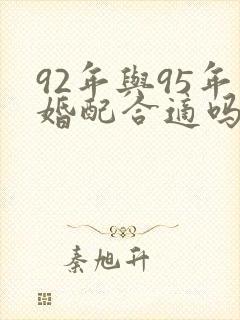 92年與95年
婚配合適嗎
秦旭升